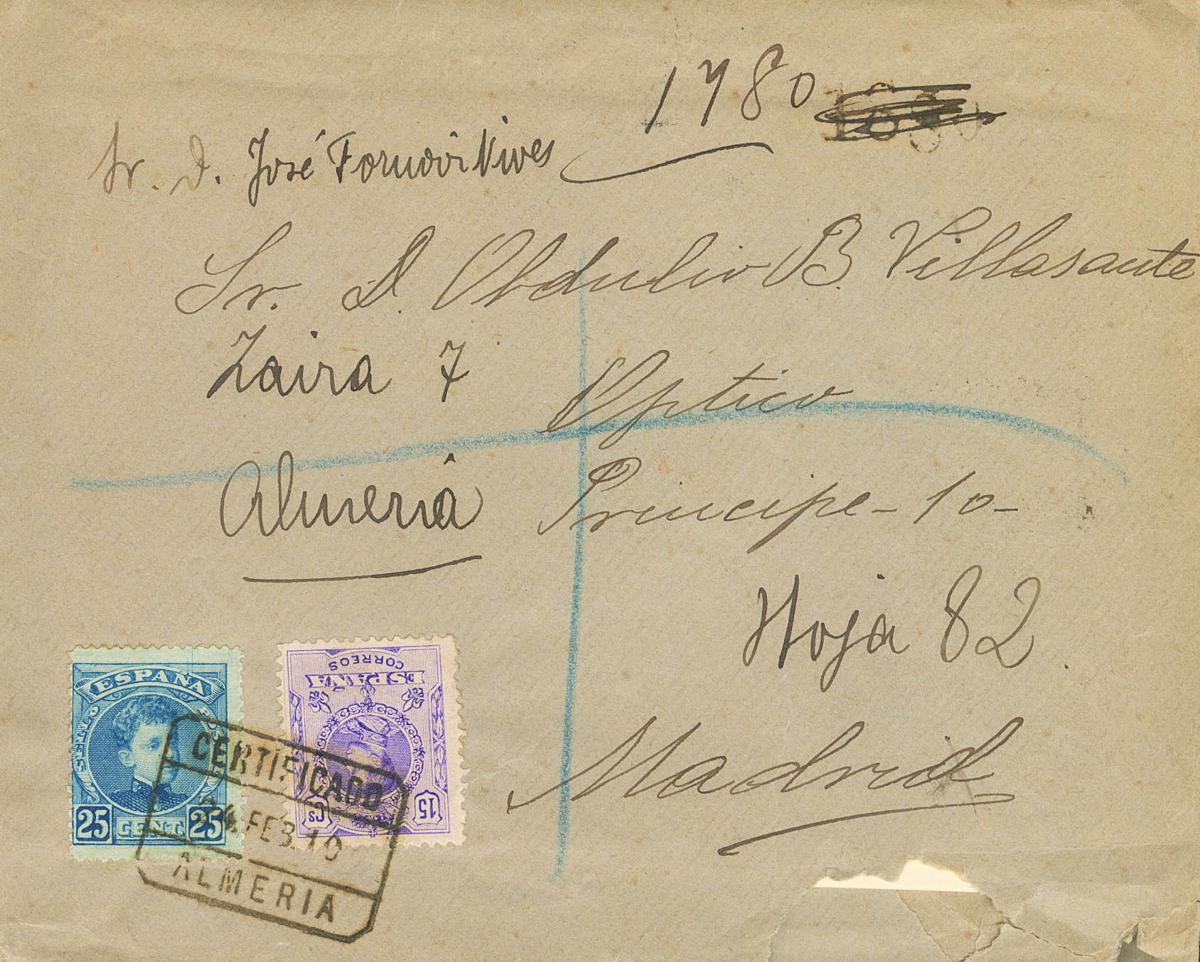 1780
Sr. D. José Fornovi Vives
Sr. D. Obdulio B. Villasante
Zaira 7
Optico
Almeria
Principe - 10 -
Hoja 82.
Madrid
ESPAÑA
SELLO POSTAL
25 CENT. 25
CORREOS
ESPAÑA
15 Cs
CERTIFICADO
24 FEB 10
ALMERIA